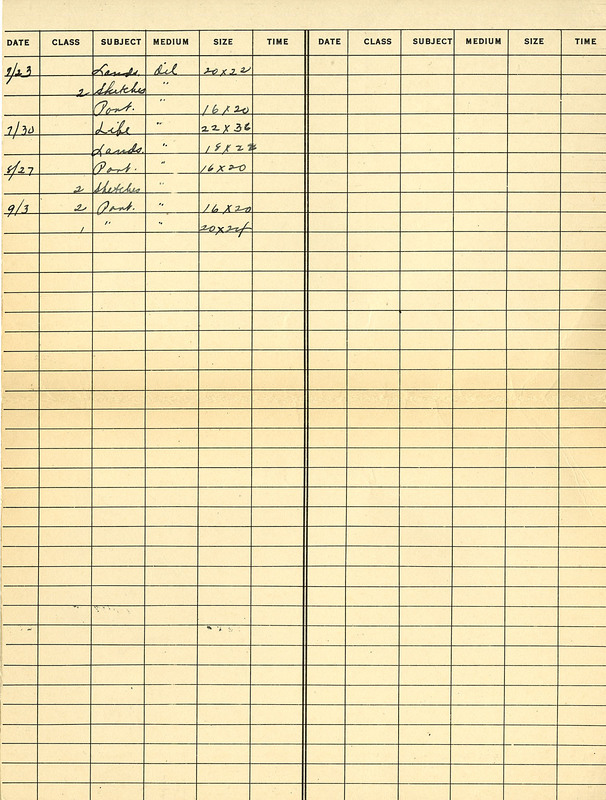 DATE CLASS SUBJECT MEDIUM SIZE TIME DATE CLASS SUBJECT MEDIUM SIZE TIME
7/23 Lands. Oil 20x22
2 Sketches "
Port. " 16x20
7/30 Life " 22x36
Lands. " 18x22
8/27 Port. " 16x20
2 Sketches "
9/3 2 Port. " 16x20
1 " " 20x24